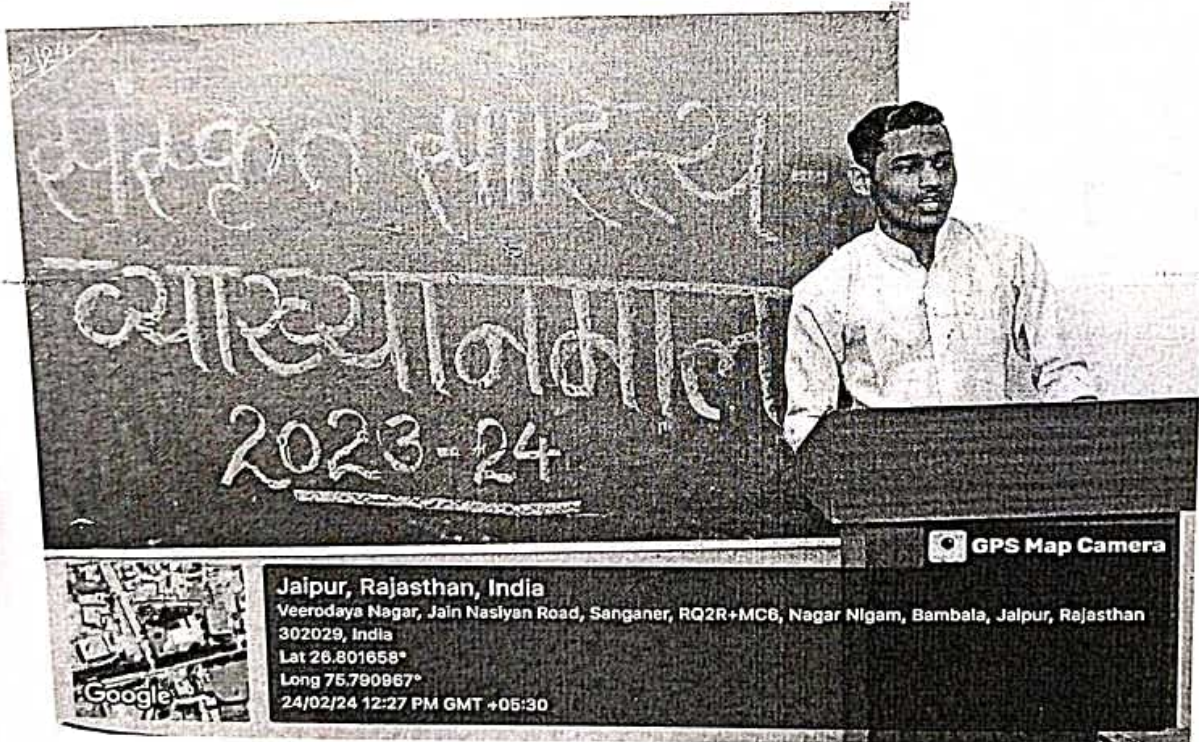 02/24
संस्कृत साहित्य
व्याख्यानमाला
2023-24
GPS Map Camera
Jaipur, Rajasthan, India
Veerodaya Nagar, Jain Nasiyan Road, Sanganer, RQ2R+MC6, Nagar Nigam, Bambala, Jaipur, Rajasthan
302029, India
Lat 26.801658°
Long 75.790967°
24/02/24 12:27 PM GMT +05:30
Google